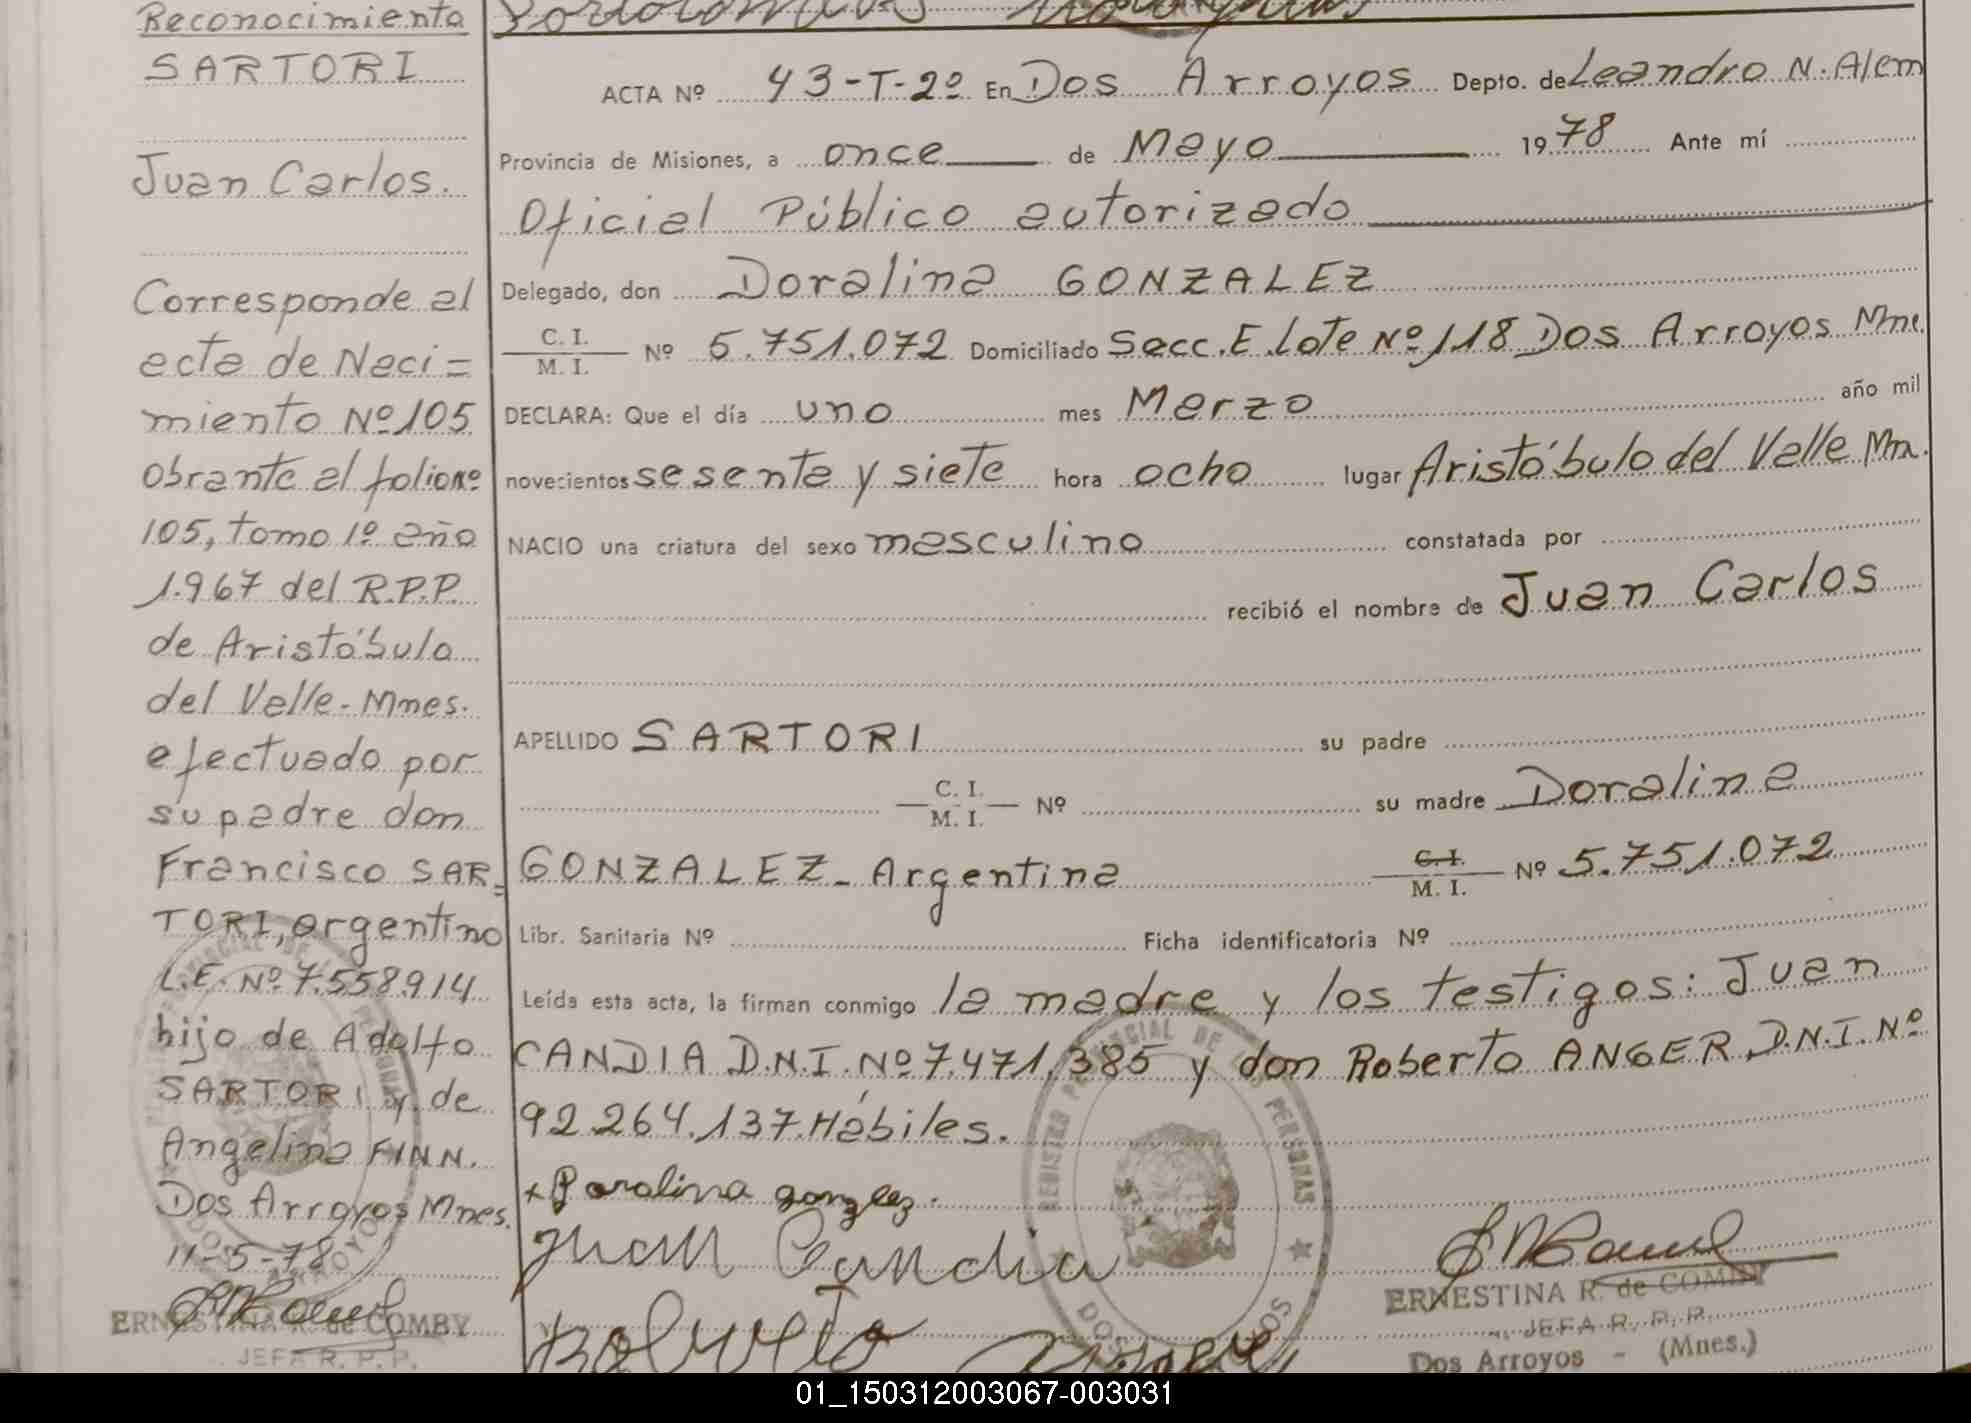 Reconocimiento
SARTORI
Juan Carlos.
Corresponde al
acta de Naci=
miento Nº 105
obrante al folio nº
105, tomo 1º año
1.967 del R.P.P.
de Aristóbulo
del Valle-Mnes.
efectuado por
su padre don
Francisco SAR=
TORI, argentino
L.E. Nº 7.558.914
hijo de Adolfo
SARTORI y de
Angelina FINN.
Dos Arroyos Mnes.
11-5-78
ERNESTINA R. de COMBY
JEFA R. P. P.
ACTA Nº 43-T-2º En Dos Arroyos Depto. de Leandro N. Alem
Provincia de Misiones, a once de Mayo 1978 Ante mí
Oficial Público autorizado
Delegado, don Doralina GONZALEZ
C. I.
M. I. Nº 5.751.072 Domiciliado Secc. E. Lote Nº 118 Dos Arroyos Mne.
DECLARA: Que el día uno mes Marzo año mil
novecientos sesenta y siete hora ocho lugar Aristóbulo del Valle Mn.
NACIO una criatura del sexo masculino constatada por
recibió el nombre de Juan Carlos
APELLIDO SARTORI su padre
C. I.
M. I. Nº su madre Doralina
GONZALEZ - Argentina C. I.
M. I. Nº 5.751.072
Libr. Sanitaria Nº Ficha identificatoria Nº
Leída esta acta, la firman conmigo la madre y los testigos: Juan
CANDIA D.N.I. Nº 7.471.385 y don Roberto ANGER D.N.I. Nº
92.264.137. Hábiles.
REGISTRO PROVINCIAL DE LAS PERSONAS
DOS ARROYOS
+ Doralina gonzlez.
Juan Candia
Roberto Anger
ERNESTINA R. de COMBY
JEFA R. P. P.
Dos Arroyos - (Mnes.)
01_150312003067-003031